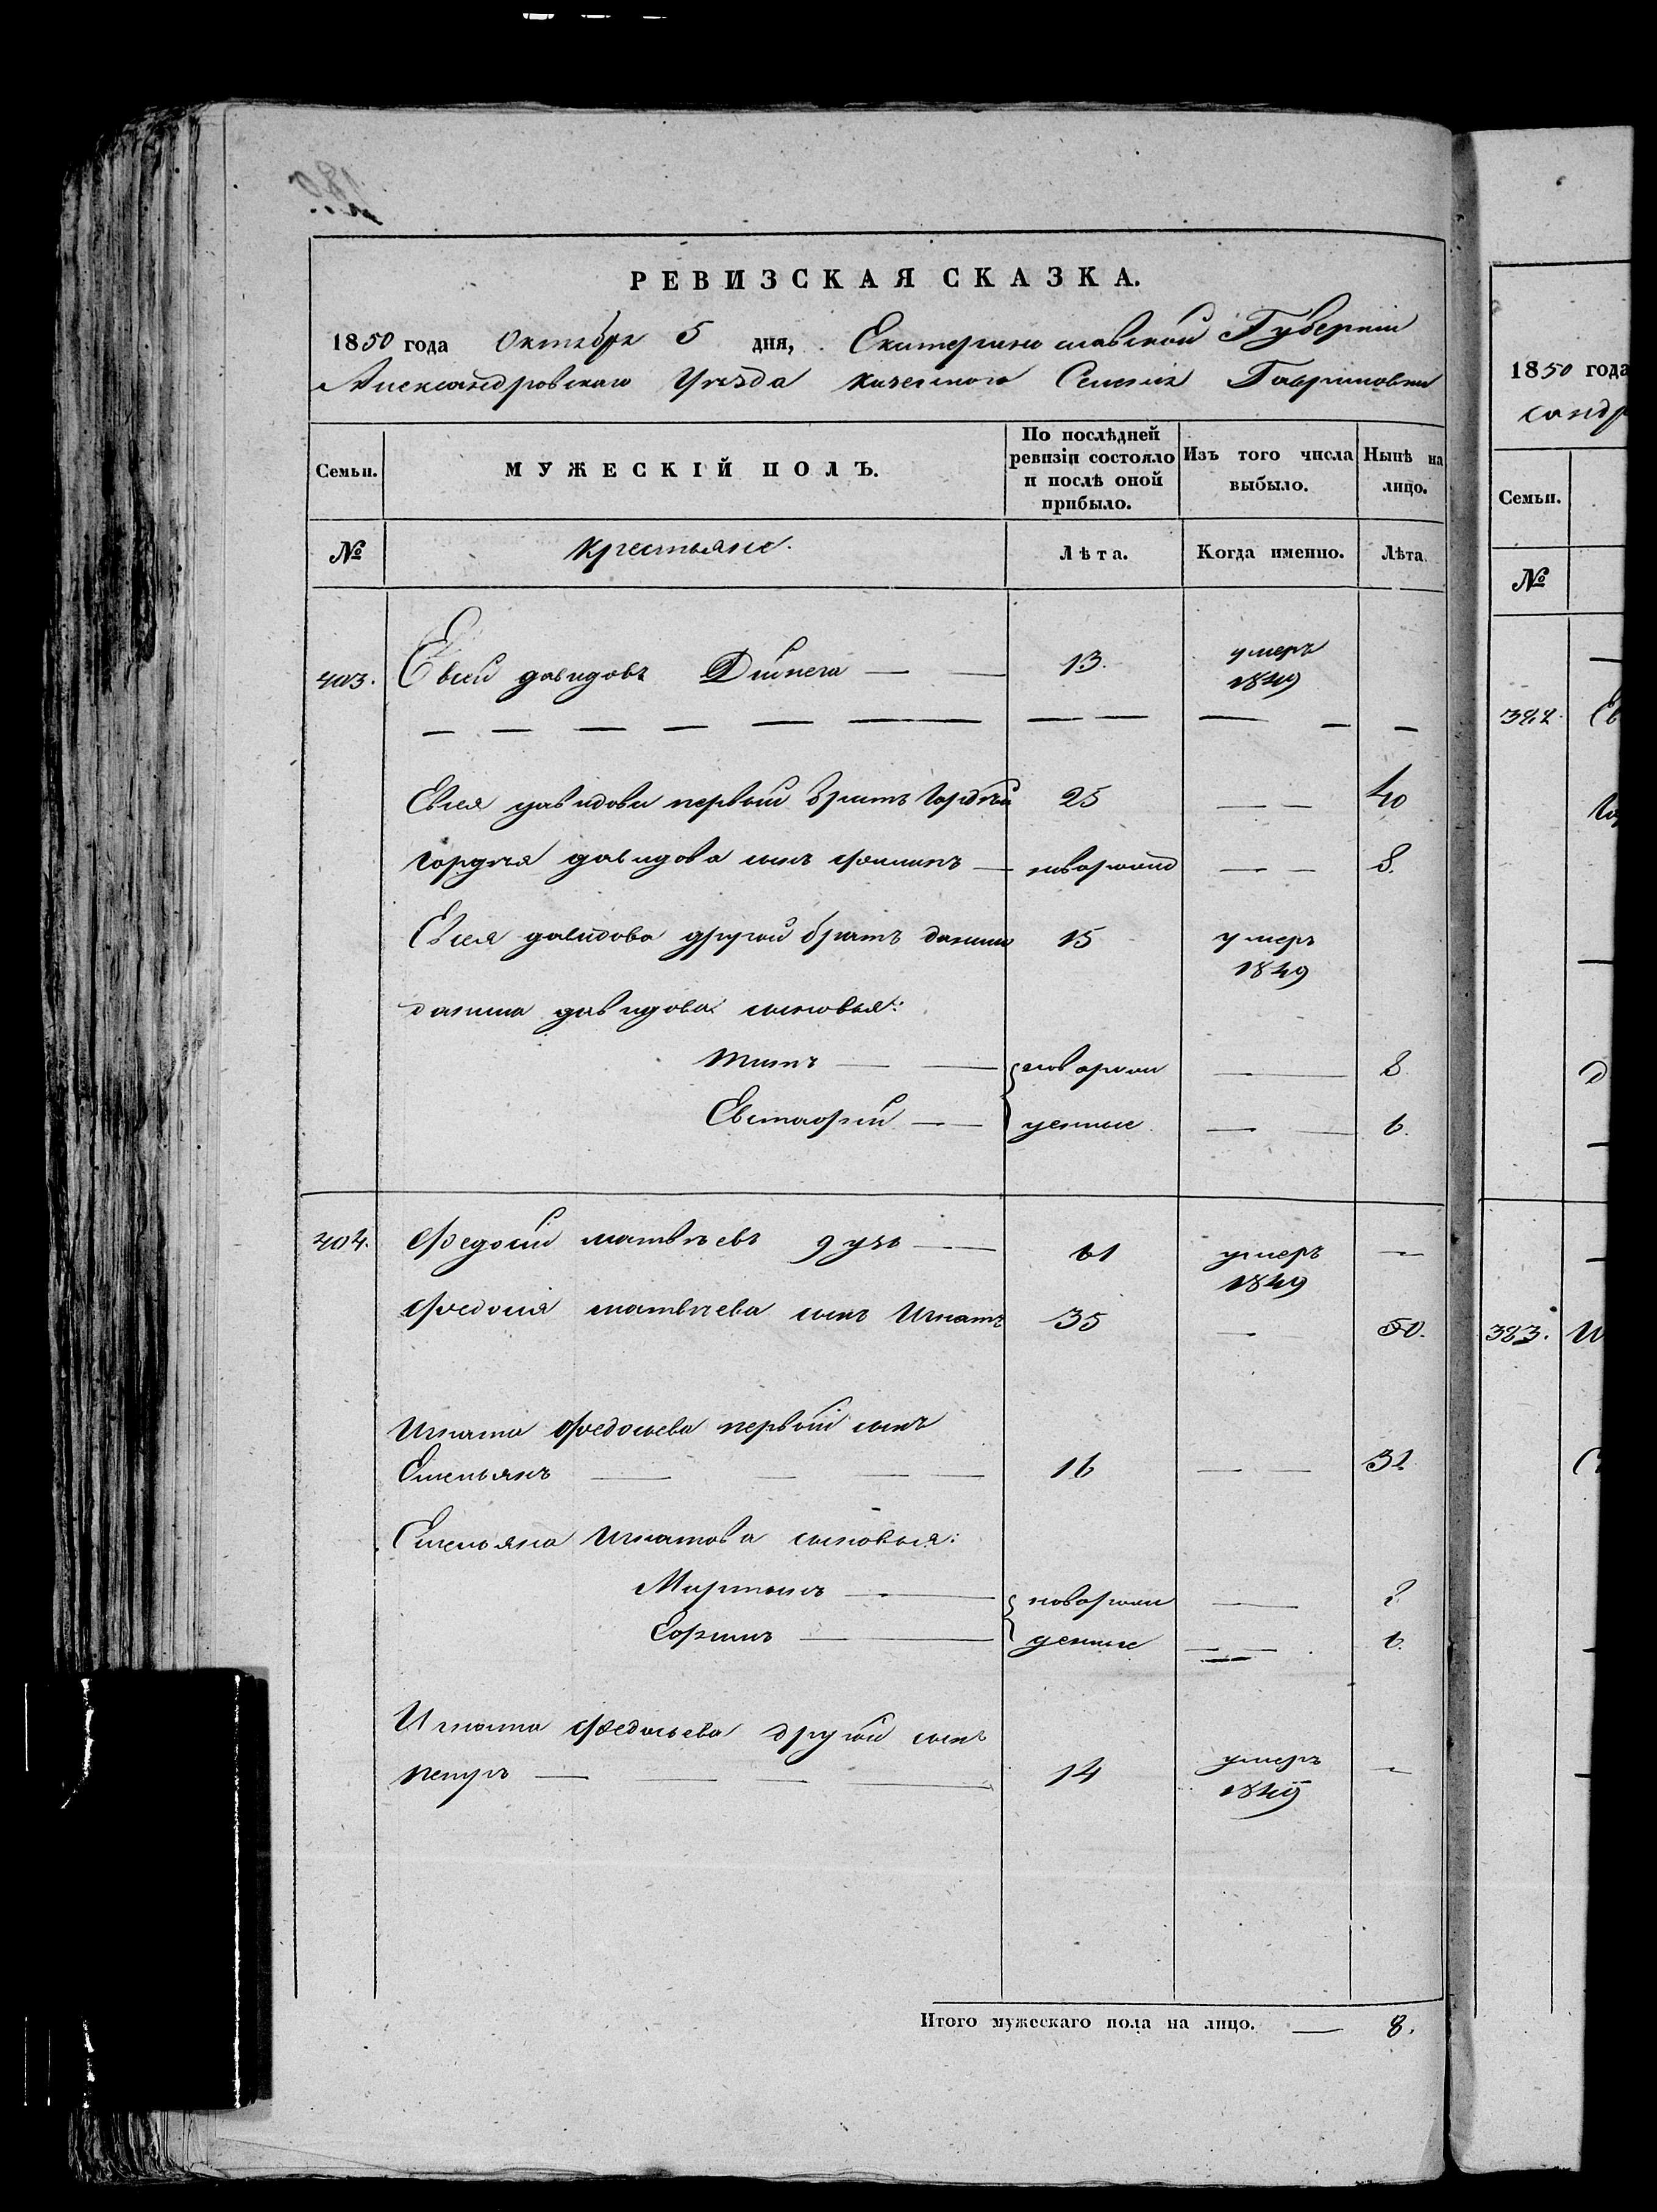 РЕВИЗСКАЯ СКАЗКА.
1850 года Октября 5 дня, Екатеринославской Губерніи
Александровскаго Уѣзда казеннаго Селенія Гавриловки
Семьи.
МУЖЕСКІЙ ПОЛЪ.
По послѣдней ревизіи состояло и послѣ оной прибыло.
Изъ того числа выбыло.
Нынѣ на лицо.
№ Крестьяне. Лѣта. Когда именно. Лѣта.
403. Евсей давидовъ 13. умеръ
1849
Евсея давидова первый братъ Гордѣй 25 40
Гордѣя давидова сынъ новорожд 8.
Евсея давидова другой братъ данило 15 умеръ
1849
данила давидова сыновья:
Титъ новорож 8
Евстафій денные 6.
404. Федосій матвѣевъ 61 умеръ
1849
Федосія матвѣева сынъ Игнатъ 35 50.
Игната Федосьева первый сынъ
Емельянъ 16 32
Емельяна Игнатова сыновья:
Мартынъ новорож
денные
Игната Федосьева другой сынъ
петръ 14 умеръ
1849
Итого мужескаго пола на лицо. 8.
1850 года
сандр
Семьи.
№
382.
383.